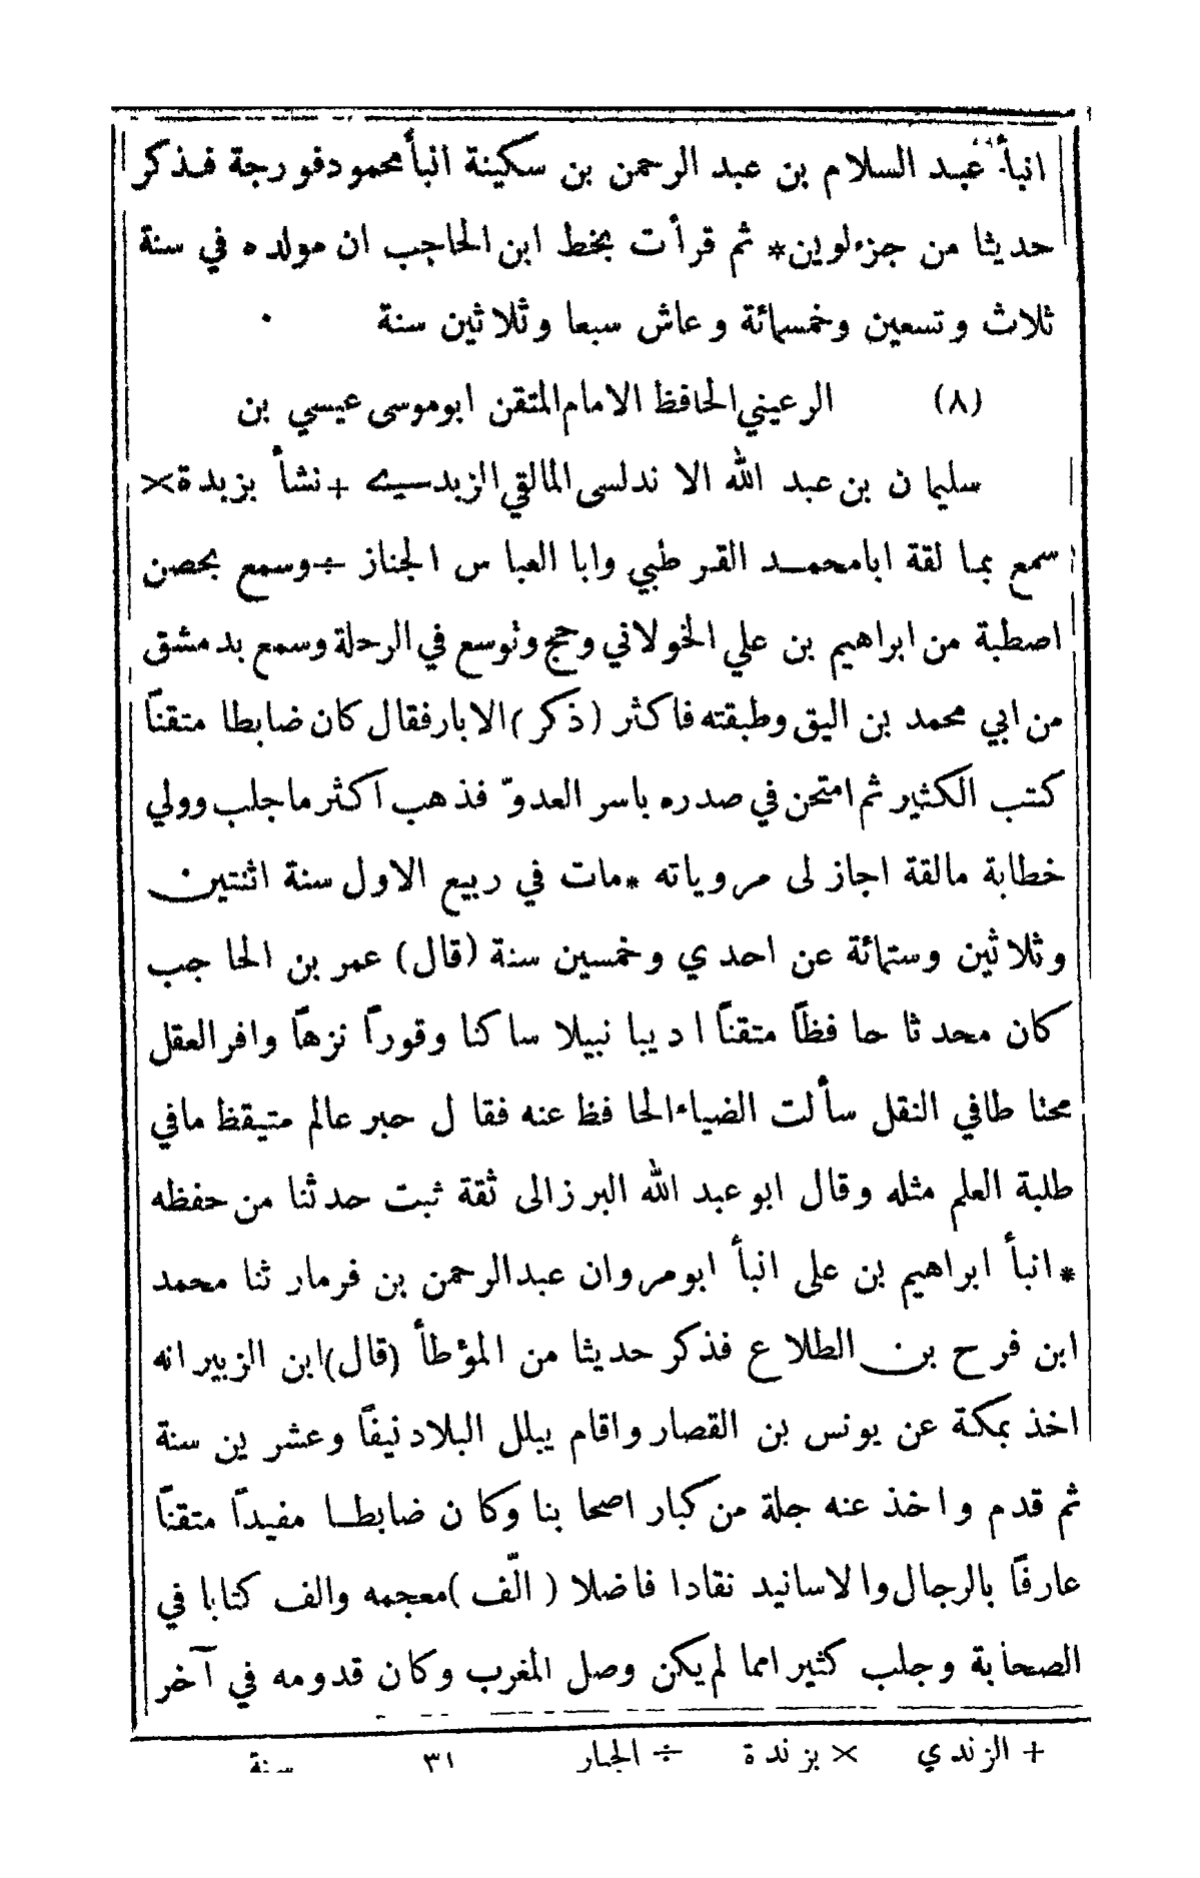 انبأ عبد السلام بن عبد الرحمن بن سكينة انبأ محمود فورجة فذكر
حديثا من جزء لوين* ثم قرأت بخط ابن الحاجب ان مولده في سنة
ثلاث وتسعين وخمسمائة وعاش سبعا وثلاثين سنة
(٨) الرعيني الحافظ الامام المتقن ابو موسى عيسي بن
سليمان بن عبد الله الاندلسى المالقي الزبدي + نشأ بزبدة×
سمع بمالقة ابا محمد القرطبي وابا العباس الجناز ÷ وسمع بحصن
اصطبة من ابراهيم بن علي الخولاني وحج وتوسع في الرحلة وسمع بدمشق
من ابي محمد بن اليق وطبقته فاكثر (ذكر) الابار فقال كان ضابطا متقنًا
كتب الكثير ثم امتحن في صدره باسر العدوّ فذهب اكثر ما جلب وولي
خطابة مالقة اجاز لى مروياته *مات في ربيع الاول سنة اثنتين
وثلاثين وستمائة عن احدي وخمسين سنة (قال) عمر بن الحاجب
كان محدثا حافظًا متقنًا اديبا نبيلا ساكنا وقورًا نزهًا وافر العقل
محتاطا في النقل سألت الضياء الحافظ عنه فقال حبر عالم متيقظ ما في
طلبة العلم مثله وقال ابو عبد الله البرزالى ثقة ثبت حدثنا من حفظه
*انبأ ابراهيم بن على انبأ ابو مروان عبد الرحمن بن فرمار ثنا محمد
ابن فرح بن الطلاع فذكر حديثا من المؤطأ (قال) ابن الزبير انه
اخذ بمكة عن يونس بن القصار واقام ببلل البلاد نيفًا وعشرين سنة
ثم قدم واخذ عنه جلة من كبار اصحابنا وكان ضابطا مفيدًا متقنًا
عارفًا بالرجال والاسانيد نقادا فاضلا (الّف) معجمه والف كتابا في
الصحابة وجلب كثيرا مما لم يكن وصل المغرب وكان قدومه في آخر
+ الزندي × بزندة ÷ الجبار ٣١ سنة